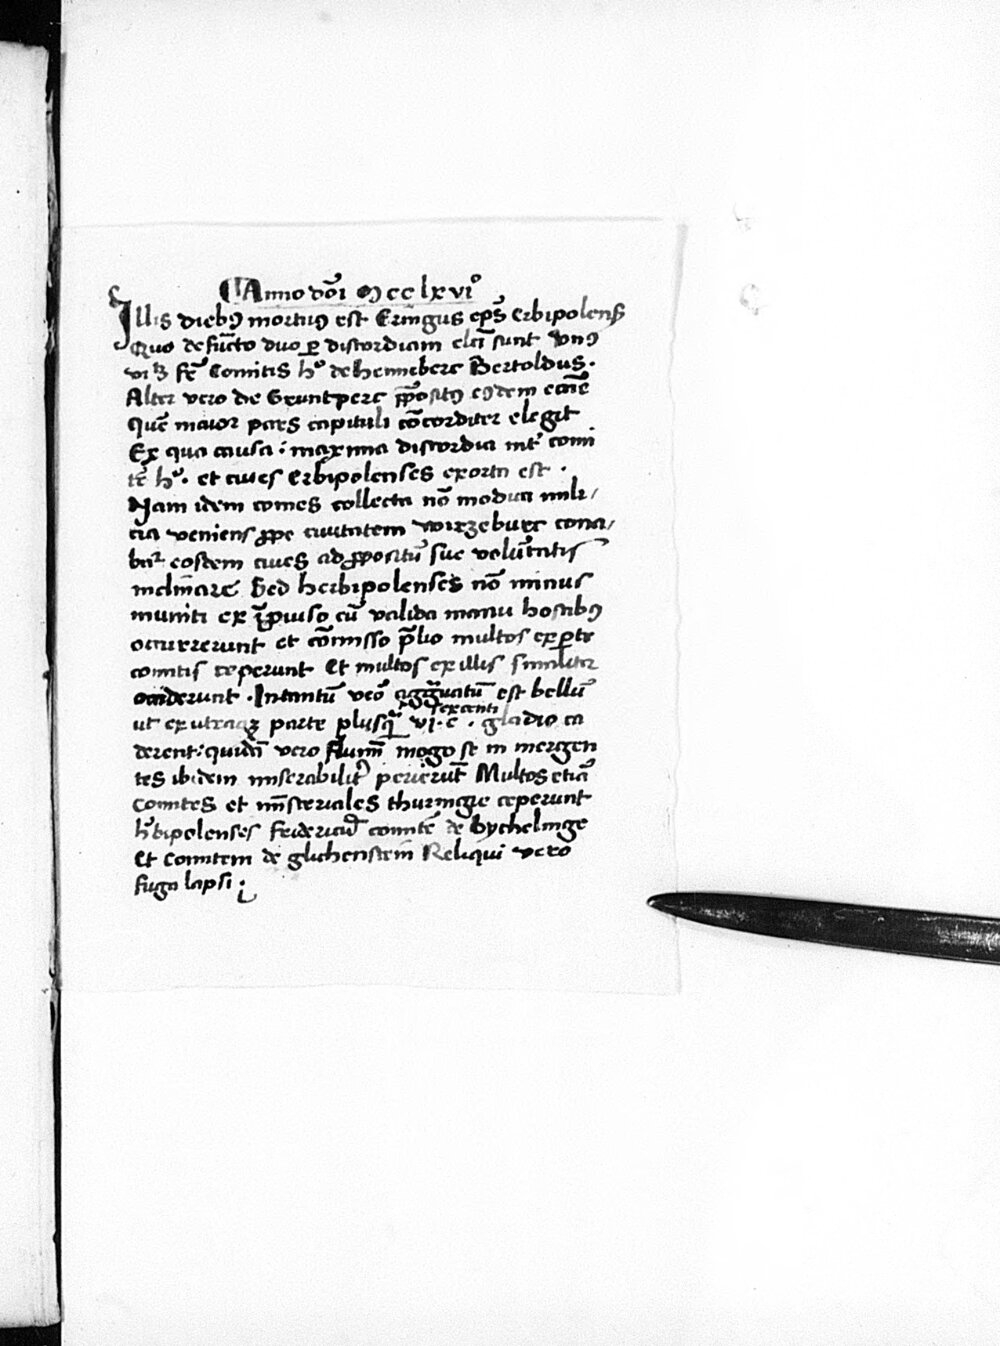 Anno dōi Mcclxviº
Illis diebꝯ mortuꝯ est Eringus ep̄s Erbipolenſꝭ
Quo defūcto duo ꝑ discordiam elc̄i sunt Vnꝯ
vꝫ fr̄ Comitis h° de henneberc Bertoldus.
Alter vero de Gruntperc p̄positꝯ eꝯdem ecc̄ie
quē maior pars capituli cōcorditer elegit
Ex qua causa : maxima discordia int̄ comi
tē h°. et ciues Erbipolenses exorta est .
Nam idem comes collecta nō modica mili/
cia veniens ꝓpe ciuitatem wirzeburc cona/
bat᷑ eosdem ciues ad ꝓpositū sue volūtatis
inclinare Sed herbipolenses nō minus
muniti ex īprouiso cū valida manu hostibꝯ
occurrerunt et cōmisso p̄lio multos ex ꝑte
comitis ceperunt Et multos ex illis similiter
occiderunt . Intantū vero aggͣuatū est bellū
ut ex utraqꝫ parte plusqͣ vi.c . sexcenti gladio ca
derent : quidā vero flumē mogo se in mergen
tes ibidem miserabilit᷑ perierūt Multos etiā
Comites et mīsteriales thuringie ceperunt
h̄bipolenses fridericū comitē de bychelinge
Et Comitem de glichenstein Reliqui vero
fuga lapsi .